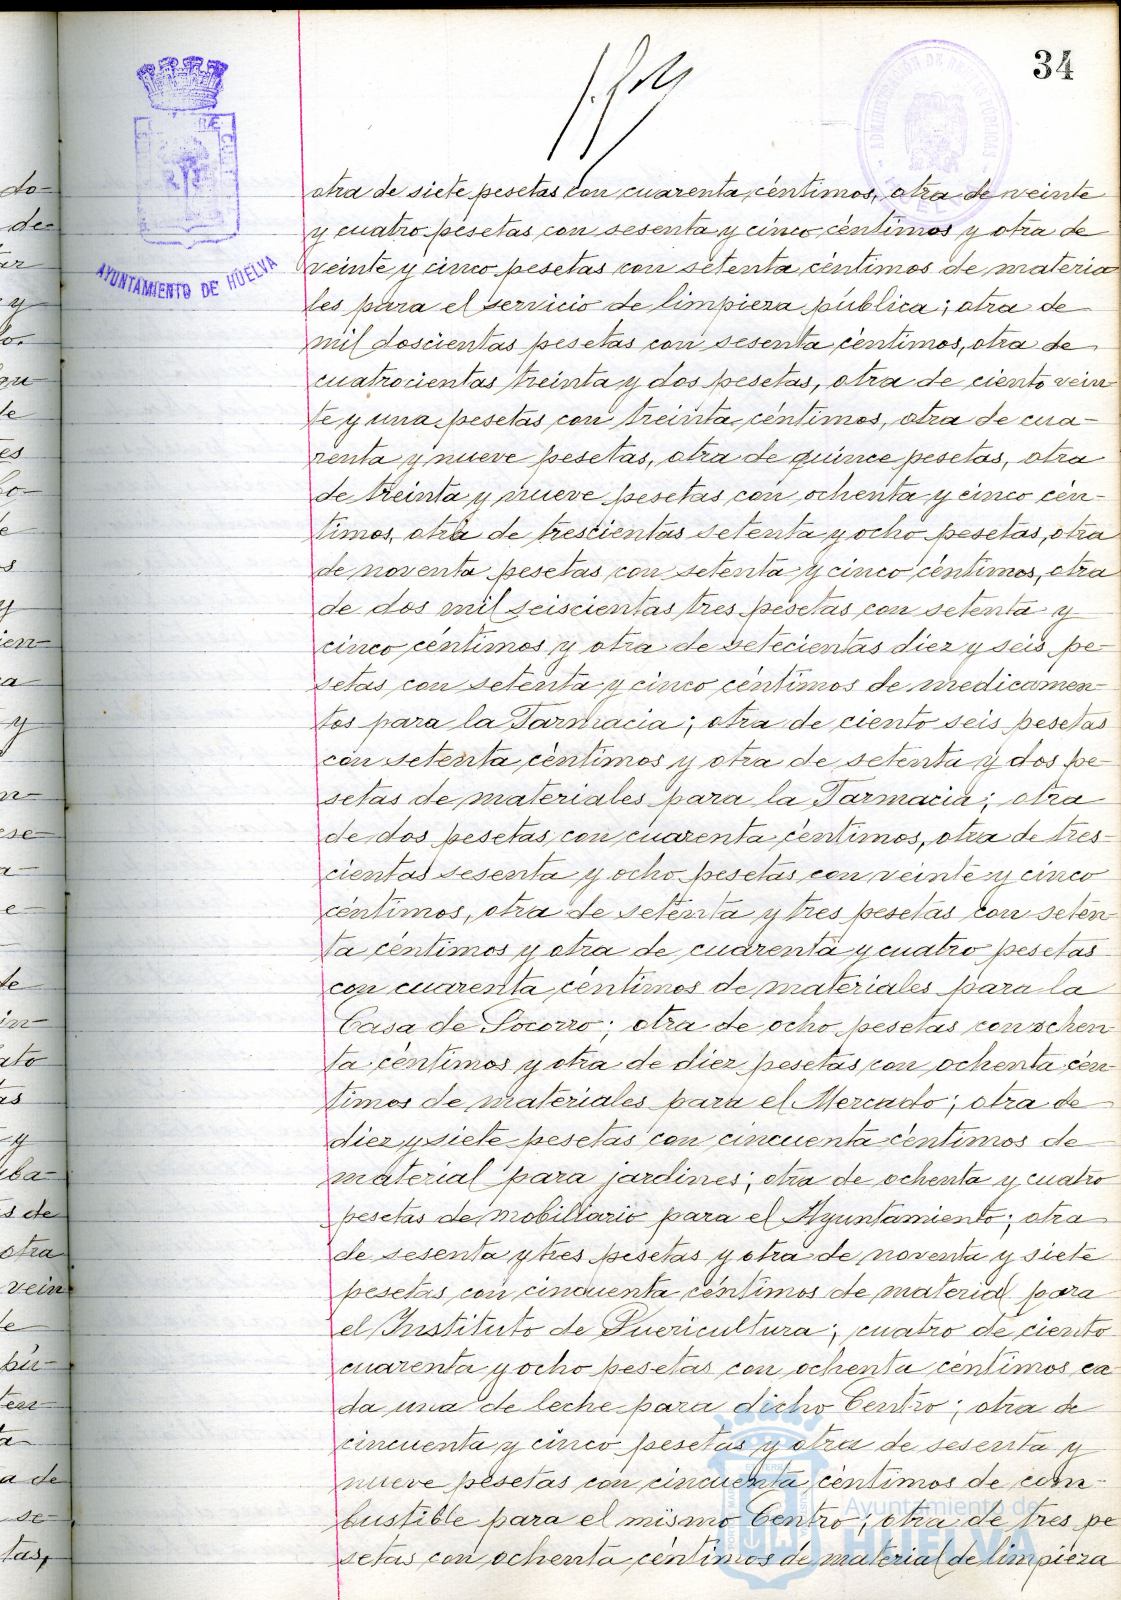 34
AYUNTAMIENTO DE HUELVA
otra de siete pesetas con cuarenta céntimos, otra de veinte
y cuatro pesetas con sesenta y cinco céntimos y otra de
veinte y cinco pesetas con setenta céntimos de materia
les para el servicio de limpieza pública; otra de
mil doscientas pesetas con sesenta céntimos, otra de
cuatrocientas treinta y dos pesetas, otra de ciento vein
te y una pesetas con treinta céntimos, otra de cua-
renta y nueve pesetas, otra de quince pesetas, otra
de treinta y nueve pesetas con ochenta y cinco cén-
timos, otra de trescientas setenta y ocho pesetas, otra
de noventa pesetas con setenta y cinco céntimos, otra
de dos mil seiscientas tres pesetas con setenta y
cinco céntimos y otra de setecientas diez y seis pe-
setas con setenta y cinco céntimos de medicamen-
tos para la Farmacia; otra de ciento seis pesetas
con setenta céntimos y otra de setenta y dos pe-
setas de materiales para la Farmacia; otra
de dos pesetas con cuarenta céntimos, otra de tres-
cientas sesenta y ocho pesetas con veinte y cinco
céntimos, otra de setenta y tres pesetas con seten
ta céntimos y otra de cuarenta y cuatro pesetas
con cuarenta céntimos de materiales para la
Casa de Socorro; otra de ocho pesetas con ochen
ta céntimos y otra de diez pesetas con ochenta cén-
timos de materiales para el Mercado; otra de
diez y siete pesetas con cincuenta céntimos de
material para jardines; otra de ochenta y cuatro
pesetas de mobiliario para el Ayuntamiento; otra
de sesenta y tres pesetas y otra de noventa y siete
pesetas con cincuenta céntimos de material para
el Instituto de Puericultura; cuatro de ciento
cuarenta y ocho pesetas con ochenta céntimos ca
da una de leche para dicho Centro; otra de
cincuenta y cinco pesetas y otra de sesenta y
nueve pesetas con cincuenta céntimos de com-
bustible para el mismo Centro; otra de tres pe
setas con ochenta céntimos de material de limpieza
Ayuntamiento de
HUELVA